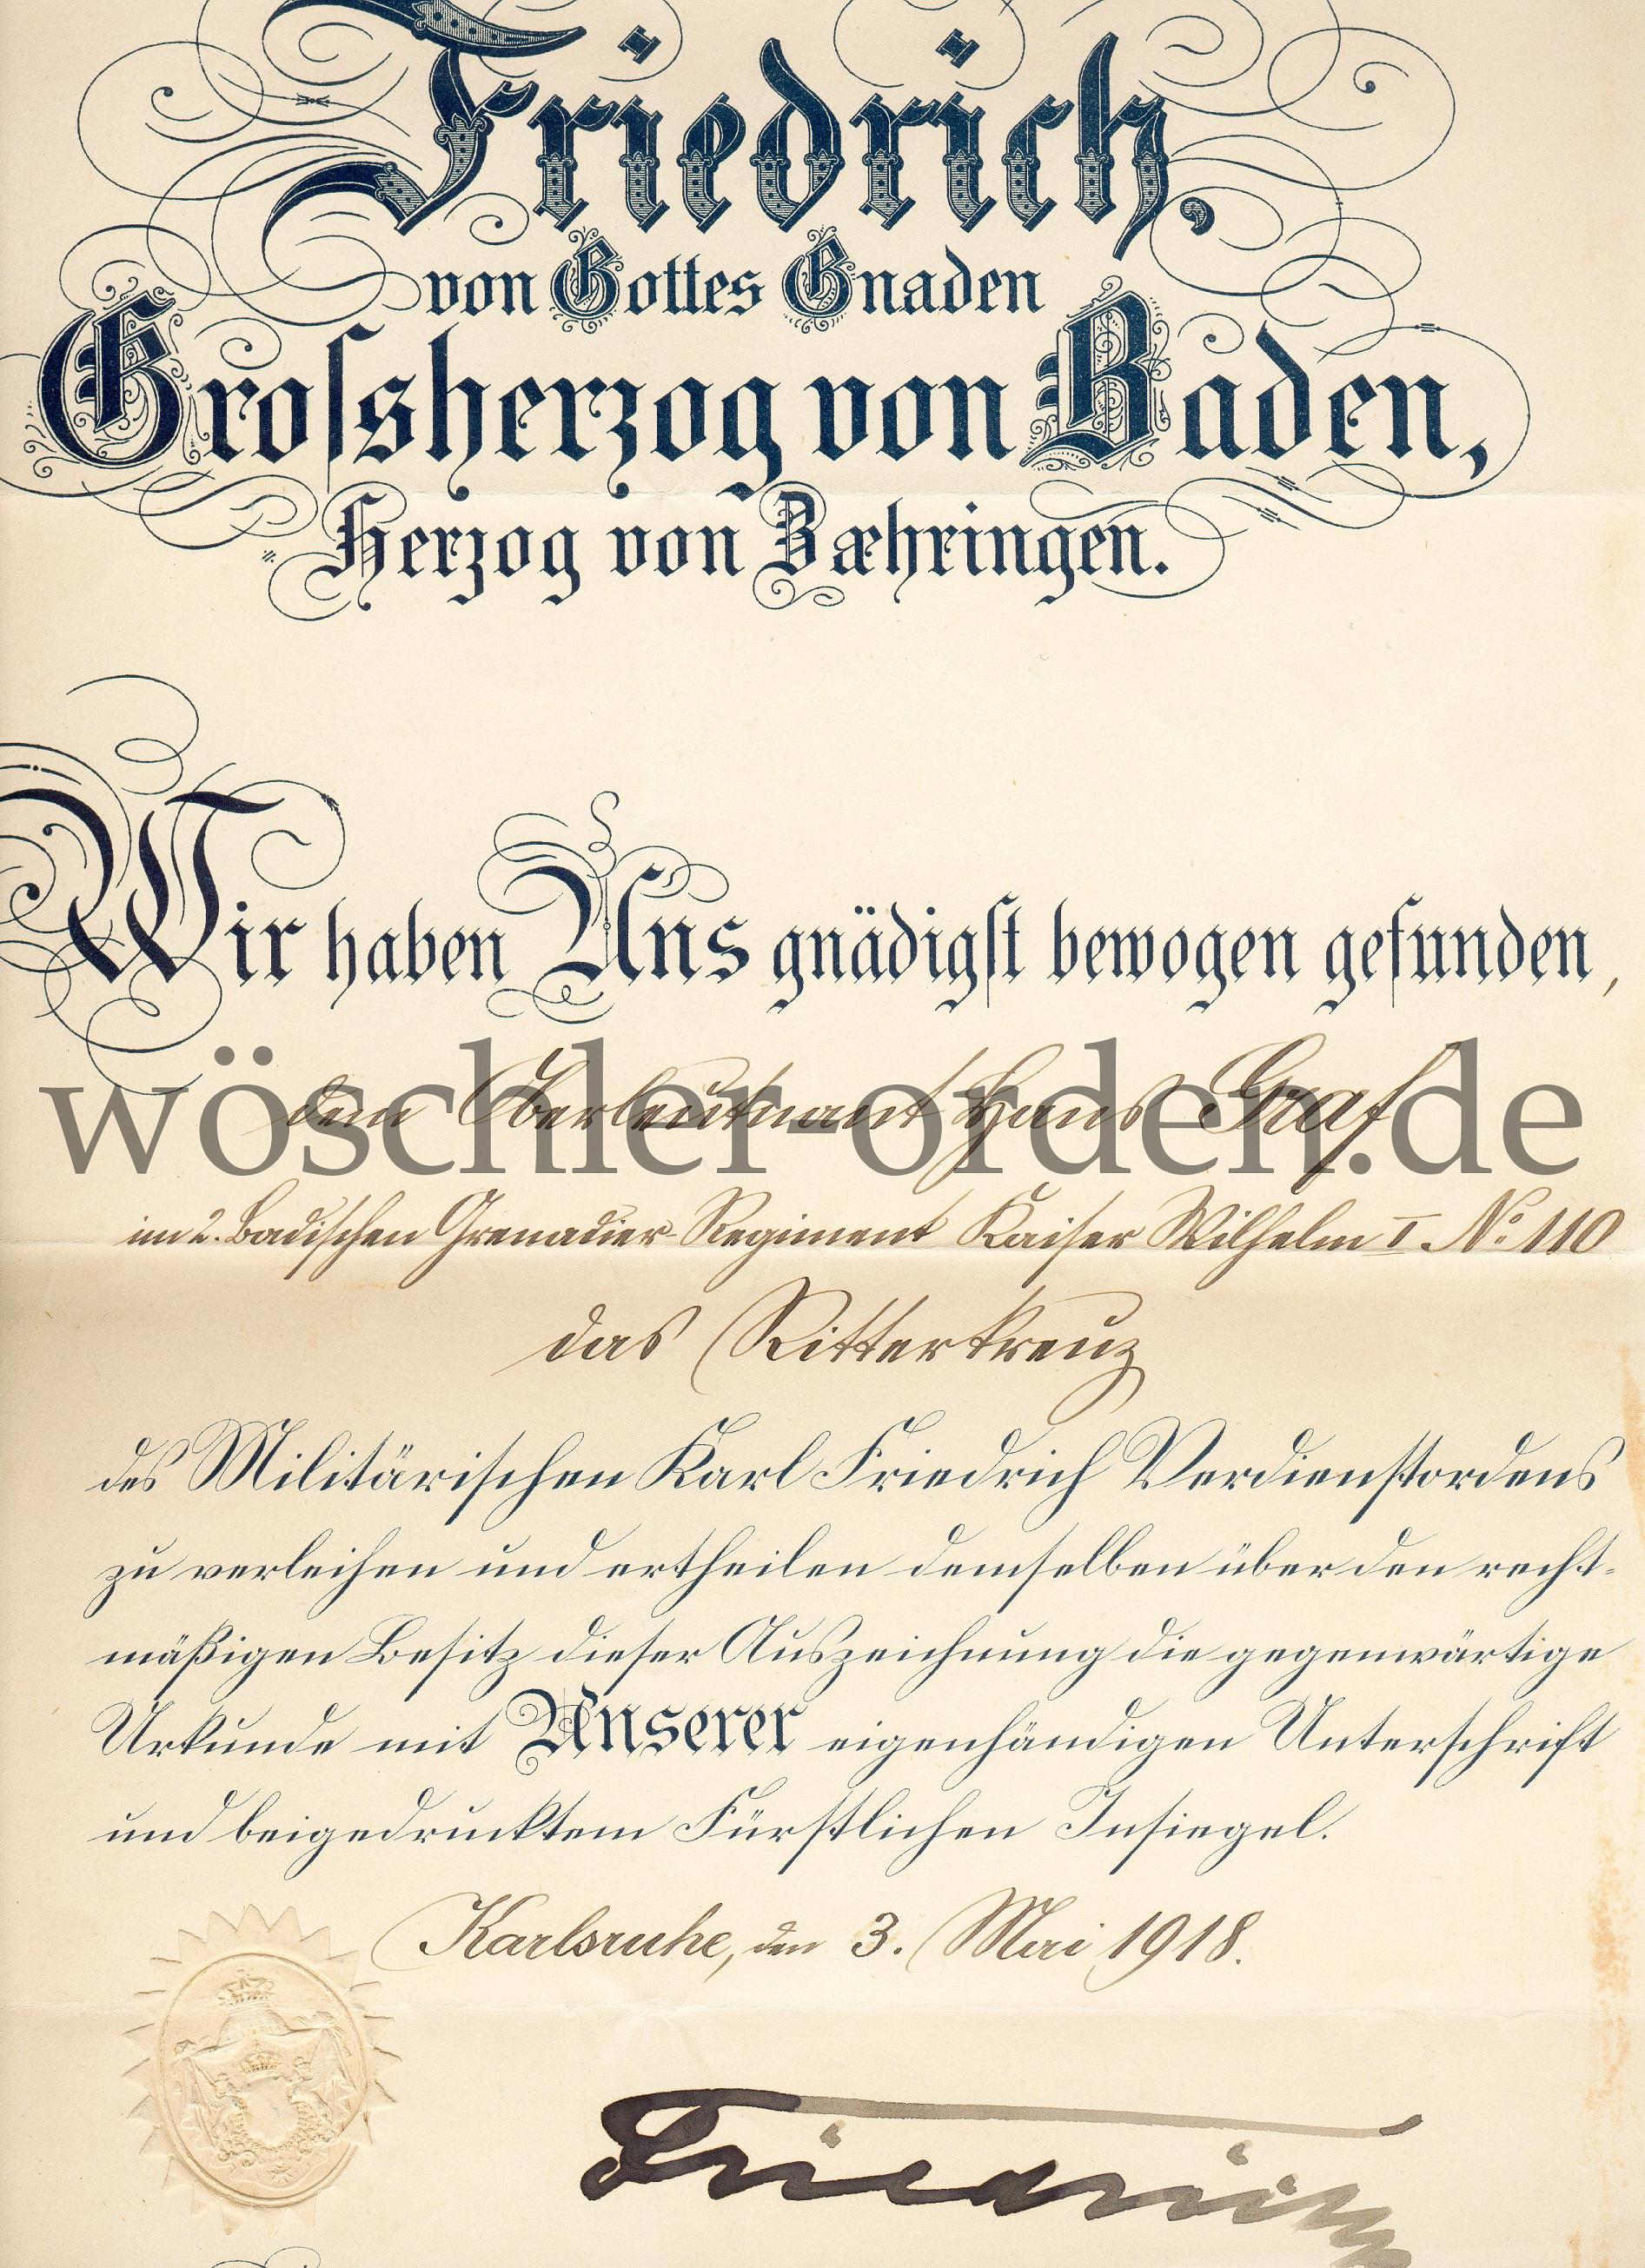 Friedrich,
von Gottes Gnaden
Groſsherzog von Baden,
Herzog von Zæhringen.
Wir haben Uns gnädigſt bewogen gefunden,
wöschler-orden.de
dem Oberleutnant Hans Graf
im 2. Badischen Grenadier-Regiment Kaiser Wilhelm I No. 110
das Ritterkreuz
des Militärischen Karl Friedrich Verdienstordens
zu verleihen und ertheilen demselben über den recht-
mäßigen Besitz dieser Auszeichnung die gegenwärtige
Urkunde mit Unserer eigenhändigen Unterschrift
und beigedrucktem Fürstlichen Insiegel.
Karlsruhe, den 3. Mai 1918.
Friedrich